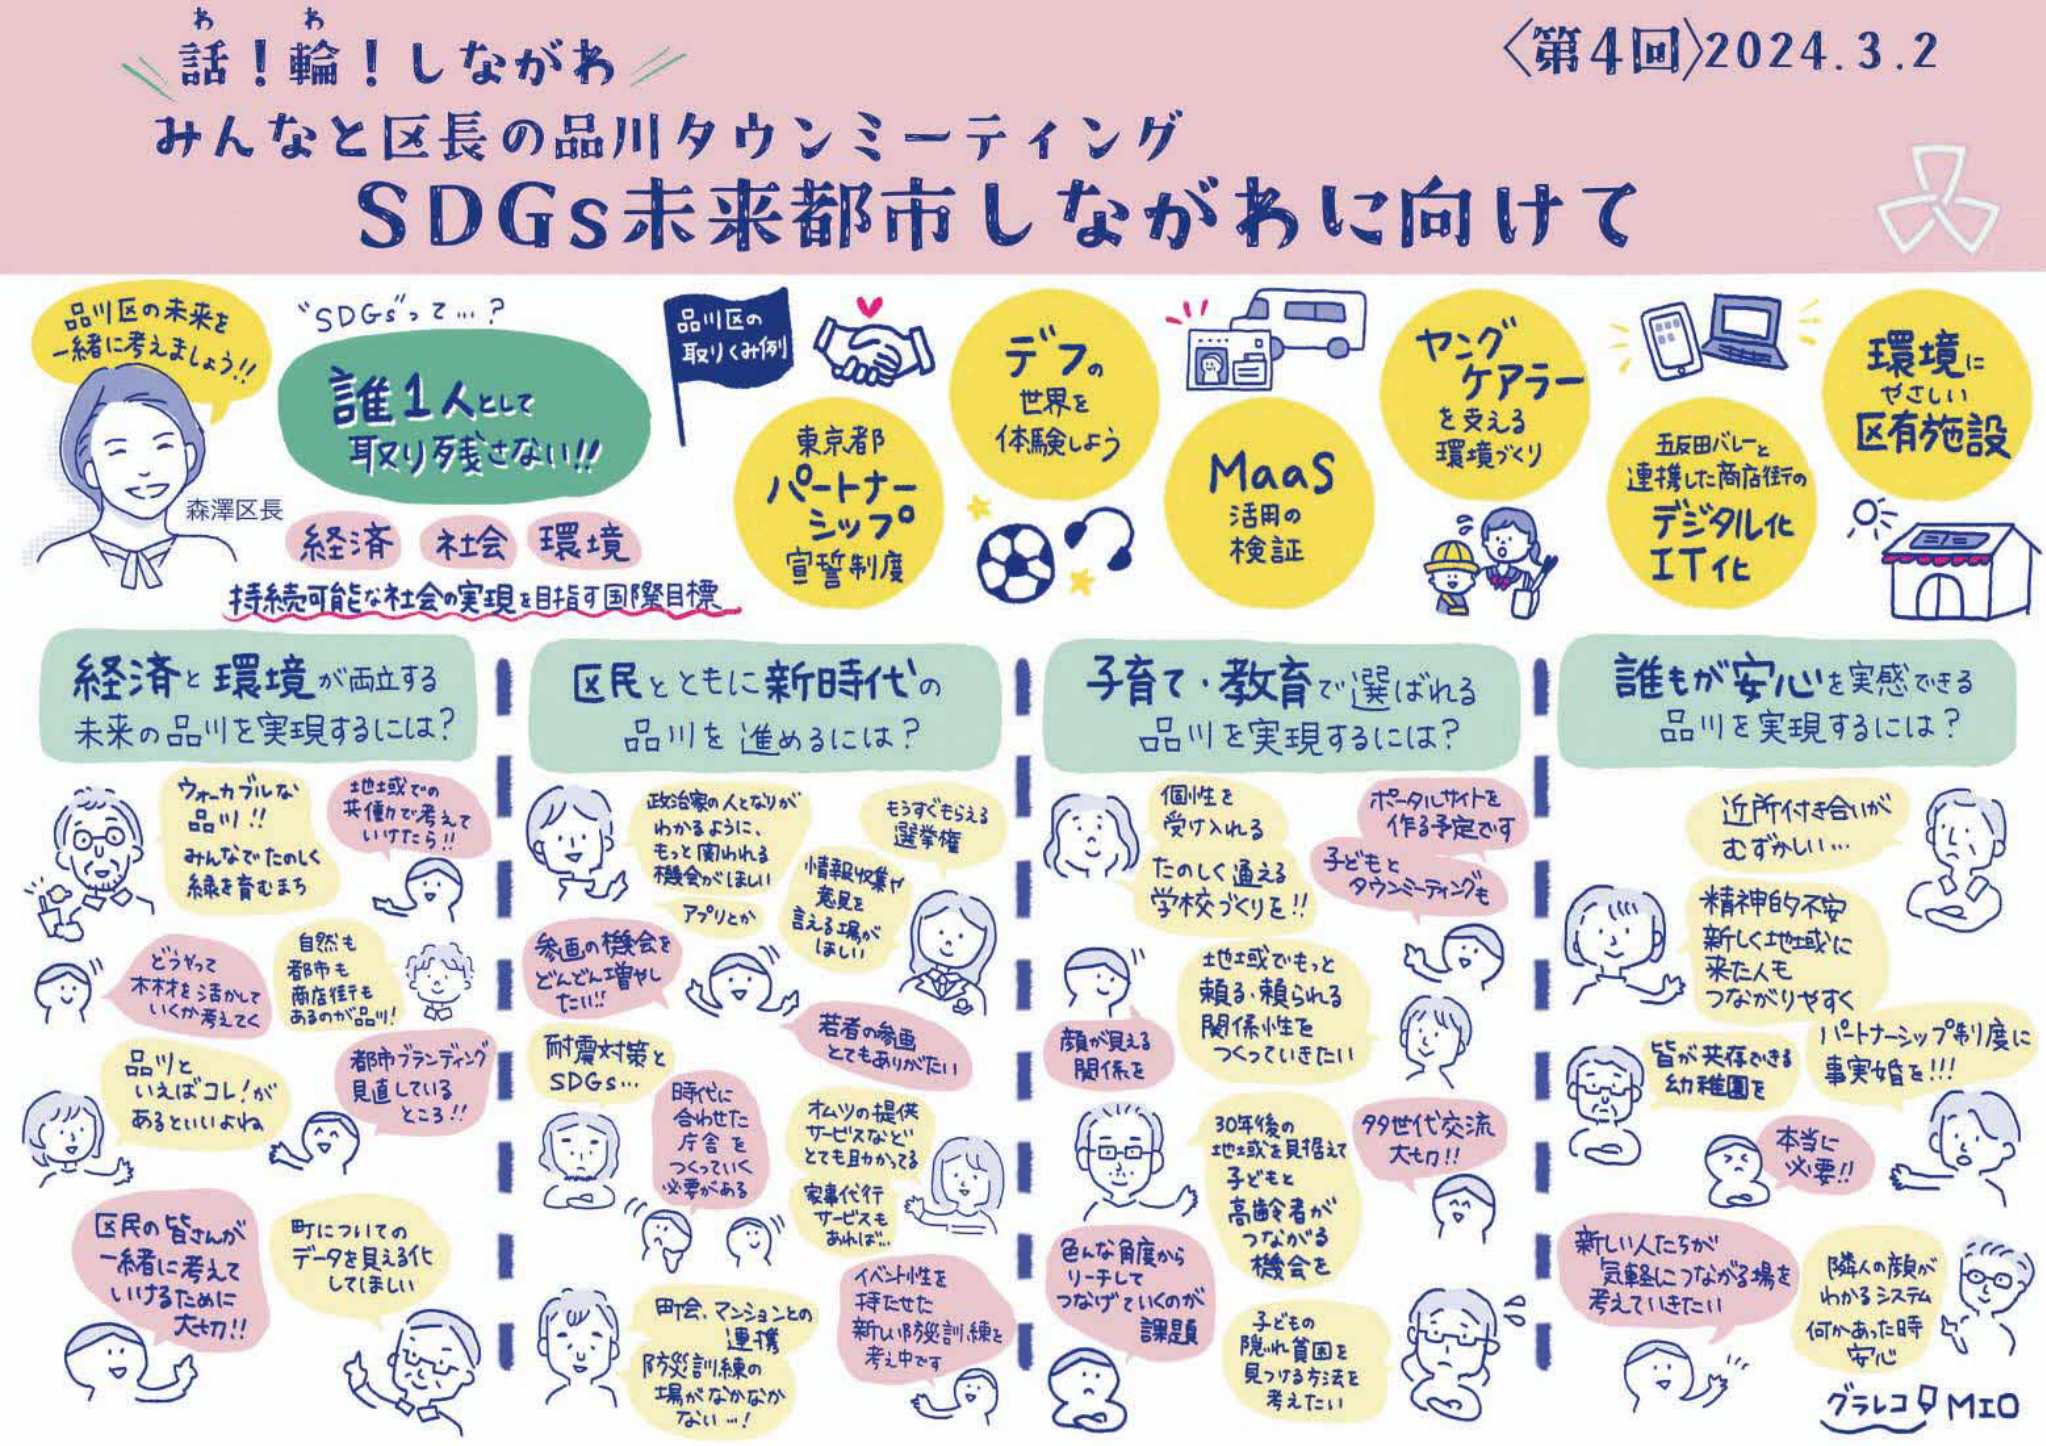 話！輪！しながわ
わ わ
〈第4回〉2024.3.2
みんなと区長の品川タウンミーティング
SDGs未来都市しながわに向けて
品川区の未来を
一緒に考えましょう!!
森澤区長
"SDGs"って…?
誰1人として
取り残さない!!
経済 社会 環境
持続可能な社会の実現を目指す国際目標
品川区の
取りくみ例
東京都
パートナー
シップ
宣誓制度
デフの
世界を
体験しよう
MaaS
活用の
検証
ヤング
ケアラー
を支える
環境づくり
五反田バレーと
連携した商店街の
デジタル化
IT化
環境に
やさしい
区有施設
経済と環境が両立する
未来の品川を実現するには?
ウォーカブルな
品川!!
みんなでたのしく
緑を育むまち
地域での
共働で考えて
いけたら!!
どうやって
木材を活かして
いくか考えてく
自然も
都市も
商店街も
あるのが品川!
品川と
いえばコレ!が
あるといいよね
都市ブランディング
見直している
ところ!!
区民の皆さんが
一緒に考えて
いけるために
大切!!
町についての
データを見える化
してほしい
区民とともに新時代の
品川を進めるには?
政治家の人となりが
わかるように、
もっと関われる
機会がほしい
アプリとか
もうすぐもらえる
選挙権
情報収集や
意見を
言える場が
ほしい
参画の機会を
どんどん増やし
たい!!
若者の参画
とてもありがたい
耐震対策と
SDGs…
時代に
合わせた
庁舎を
つくっていく
必要がある
オムツの提供
サービスなど
とても助かってる
家事代行
サービスも
あれば…
町会、マンションとの
連携
防災訓練の
場がなかなか
ない…!
イベント性を
持たせた
新しい防災訓練を
考え中です
子育て・教育で選ばれる
品川を実現するには?
個性を
受け入れる
たのしく通える
学校づくりを!!
ポータルサイトを
作る予定です
子どもと
タウンミーティングも
地域でもっと
頼る・頼られる
関係性を
つくっていきたい
顔が見える
関係を
30年後の
地域を見据えて
子どもと
高齢者が
つながる
機会を
多世代交流
大切!!
色んな角度から
リーチして
つなげていくのが
課題
子どもの
隠れ貧困を
見つける方法を
考えたい
誰もが安心を実感できる
品川を実現するには?
近所付き合いが
むずかしい…
精神的不安
新しく地域に
来た人も
つながりやすく
皆が共存できる
幼稚園を
パートナーシップ制度に
事実婚を!!!
本当に
必要!!
新しい人たちが
気軽につながる場を
考えていきたい
隣人の顔が
わかるシステム
何かあった時
安心
グラレコ MIO